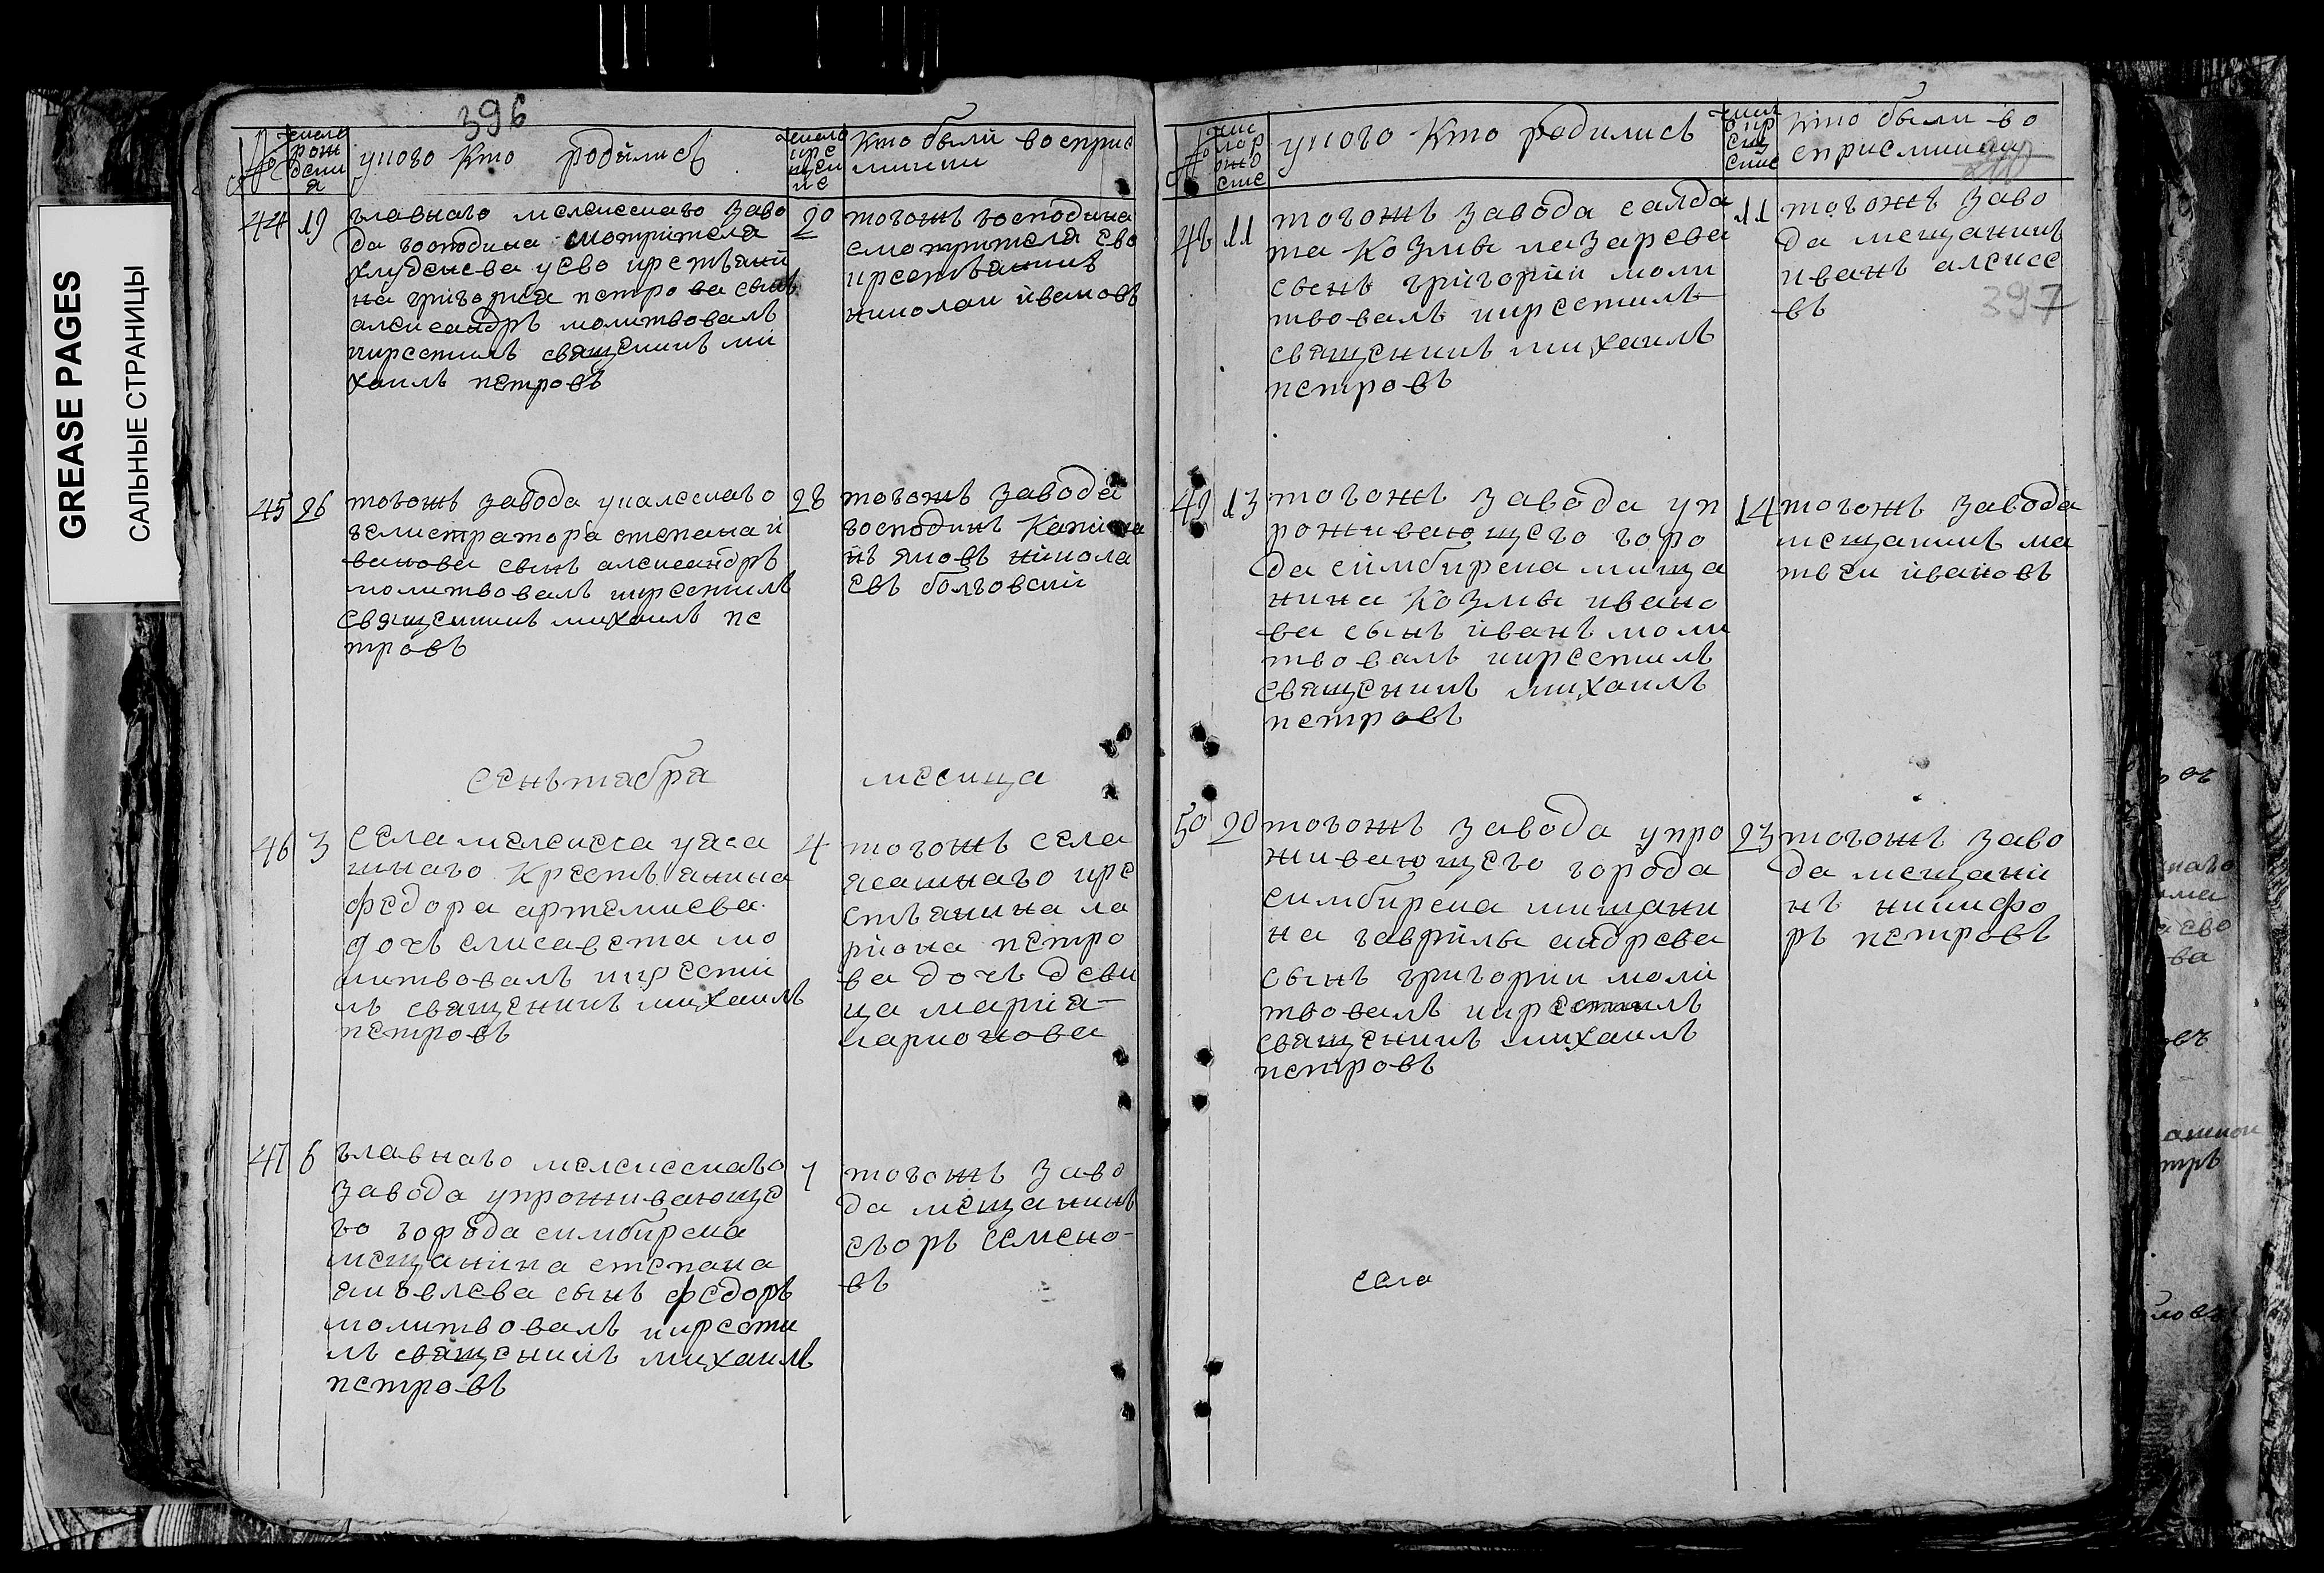 GREASE PAGES
САЛЬНЫЕ СТРАНИЦЫ
396
№
число
рож
дени
я
укого кто родились
число
кре
щен
ие
кто были восприе
мники
44
19
главнаго мелекескаго заво
да господина смотрителя
хлуденева уево крестьяни
на григорья петрова сынъ
александръ молитвовалъ
икрестилъ священникъ ми
хаилъ петровъ
20
тогожъ господина
смотрителя ево
крестьянинъ
николаи ивановъ
45
26
тогожъ завода укалескаго
регистратора степана и
ванова сынъ александръ
молитвовалъ икрестилъ
священникъ михаилъ пе
тровъ
28
тогожъ завода
господинъ капита
нъ яковъ никола
евъ болговски
сеньтабра месица
46
3
села мелекеса уяса
шнаго крестьянина
федора артемиева
дочь елисавета мо
литвовалъ икрести
лъ священникъ михаилъ
петровъ
4
тогожъ села
ясашнаго кре
стьянина ла
риона петро
ва дочь деви
ца мария
ларионова
47
6
главнаго мелекескаго
завода упроживающе
го города симбирска
мещанина степана
яковлева сынъ федоръ
молитвовалъ икрести
лъ священникъ михаилъ
петровъ
7
тогожъ заво
да мещанинъ
егоръ семено-
въ
№
укого кто родились
кто были во
сприемники
397
48
11
тогожъ завода салда
та козмы лазарева
сынъ григории моли
твовалъ икрестилъ
священникъ михаилъ
петровъ
11
тогожъ заво
да мещанинъ
иванъ алексе
въ
49
13
тогожъ завода уп
роживающего горо
да симбирска мища
нина козмы ивано
ва сынъ иванъ моли
твовалъ икрестилъ
священникъ михаилъ
петровъ
14
тогожъ завода
мещанинъ ма
твеи ивановъ
50
20
тогожъ завода упро
живающего города
симбирска мищани
на гаврилы андрева
сынъ григории моли
твовалъ икрестилъ
священникъ михаилъ
петровъ
23
тогожъ заво
да мещани
нъ никифо
ръ петровъ
села